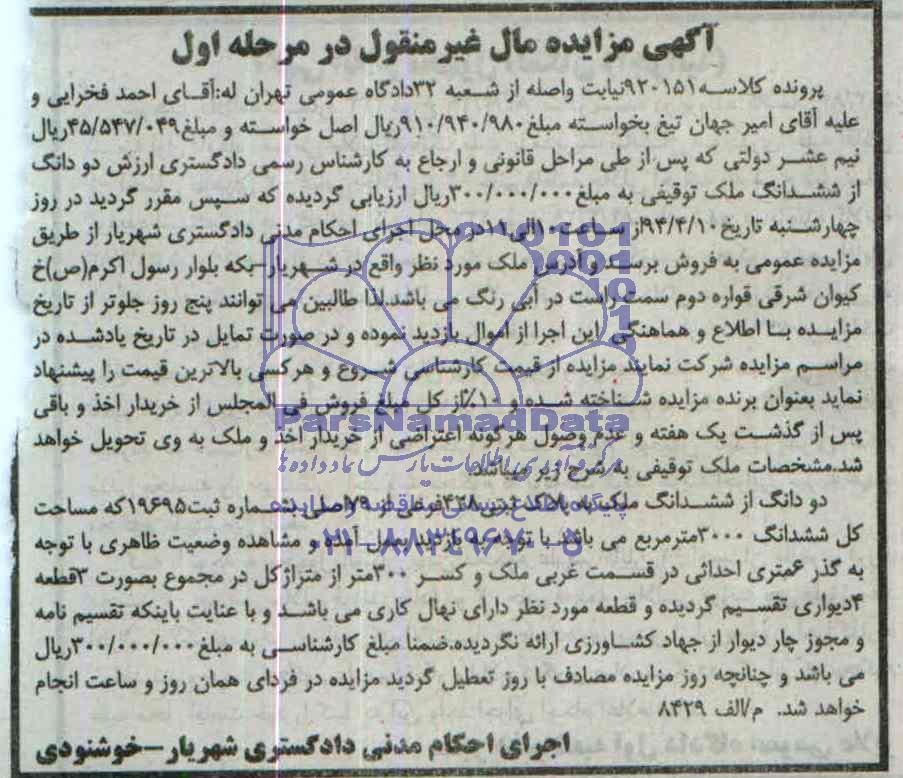 آگهی مزایده مال غیرمنقول در مرحله اول
پرونده کلاسه۹۲۰۱۵۱نیابت واصله از شعبه ۳۲دادگاه عمومی تهران له:آقای احمد فخرایی و
علیه آقای امیر جهان تیغ بخواسته مبلغ۹۱۰/۹۴۰/۹۸۰ریال اصل خواسته و مبلغ۴۵/۵۴۷/۰۴۹ریال
نیم عشر دولتی که پس از طی مراحل قانونی و ارجاع به کارشناس رسمی دادگستری ارزش دو دانگ
از ششدانگ ملک توقیفی به مبلغ۳۰۰/۰۰۰/۰۰۰ریال ارزیابی گردیده که سپس مقرر گردید در روز
چهارشنبه تاریخ۹۴/۴/۱۰از ساعت۱۰الی۱۱در محل اجرای احکام مدنی دادگستری شهریار از طریق
مزایده عمومی به فروش برسد و آدرس ملک مورد نظر واقع در شهریار-بکه بلوار رسول اکرم(ص)خ
کیوان شرقی قواره دوم سمت راست در آبی رنگ می باشد.لذا طالبین می توانند پنج روز جلوتر از تاریخ
مزایده با اطلاع و هماهنگی این اجرا از اموال بازدید نموده و در صورت تمایل در تاریخ یادشده در
مراسم مزایده شرکت نمایند مزایده از قیمت کارشناسی شروع و هرکسی بالاترین قیمت را پیشنهاد
نماید بعنوان برنده مزایده شناخته شده و ۱۰٪از کل مبلغ فروش فی المجلس از خریدار اخذ و باقی
پس از گذشت یک هفته و عدم وصول هرگونه اعتراضی از خریدار اخذ و ملک به وی تحویل خواهد
شد.مشخصات ملک توقیفی به شرح زیر میباشد.
دو دانگ از ششدانگ ملک به پلاک ثبتی ۴۲۸فرعی از ۷۹اصلی بشماره ثبت۱۹۶۹۵که مساحت
کل ششدانگ ۳۰۰۰مترمربع می باشد با توجه به بازدید بعمل آمده و مشاهده وضعیت ظاهری با توجه
به گذر ۶متری احداثی در قسمت غربی ملک و کسر ۳۰۰متر از متراژکل در مجموع بصورت ۳قطعه
۴دیواری تقسیم گردیده و قطعه مورد نظر دارای نهال کاری می باشد و با عنایت باینکه تقسیم نامه
و مجوز چار دیوار از جهاد کشاورزی ارائه نگردیده.ضمنا مبلغ کارشناسی به مبلغ۳۰۰/۰۰۰/۰۰۰ریال
می باشد و چنانچه روز مزایده مصادف با روز تعطیل گردید مزایده در فردای همان روز و ساعت انجام
خواهد شد. م/الف ۸۴۲۹
اجرای احکام مدنی دادگستری شهریار –خوشنودی
ParsNamadData
مرکز فرآوری اطلاعات پارس نماد داده ها
۰۲۱-۸۸۳۴۹۶۷۰-۵